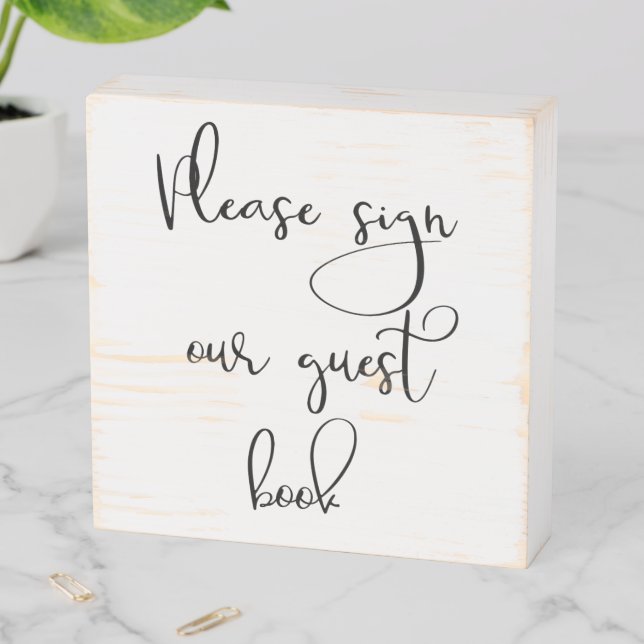 Please sign
our guest
book